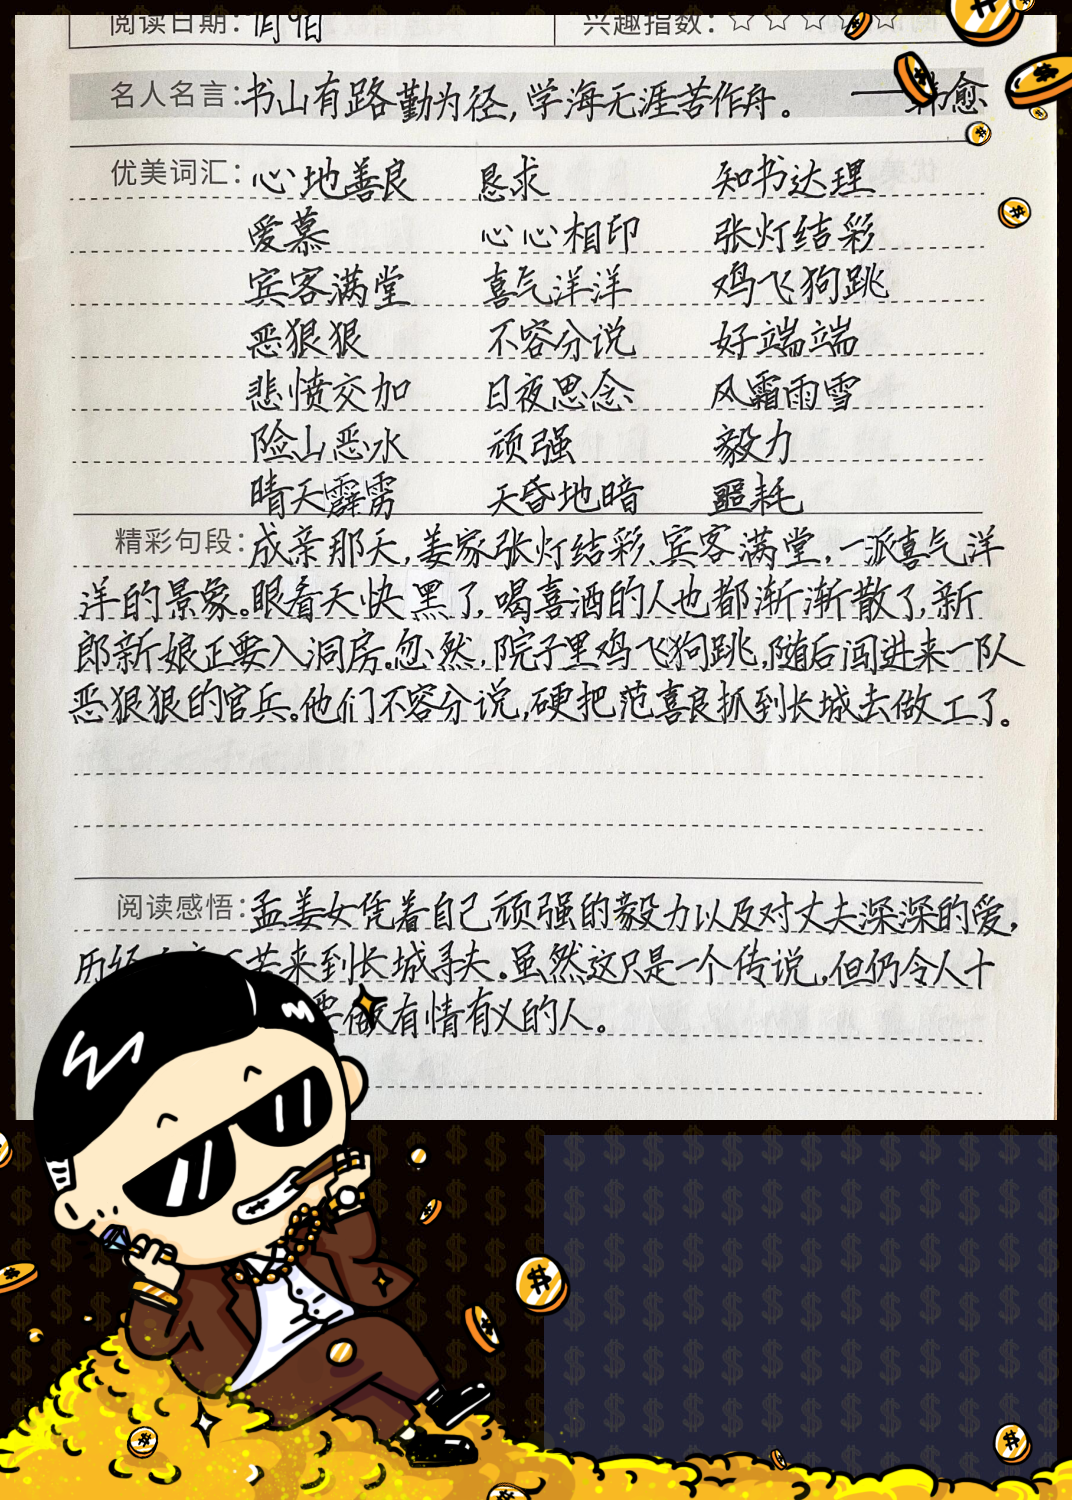 阅读日期：1月9日 兴趣指数：☆☆☆☆☆
名人名言：书山有路勤为径，学海无涯苦作舟。 ——韩愈
优美词汇：心地善良 恳求 知书达理
爱慕 心心相印 张灯结彩
宾客满堂 喜气洋洋 鸡飞狗跳
恶狠狠 不容分说 好端端
悲愤交加 日夜思念 风霜雨雪
险山恶水 顽强 毅力
晴天霹雳 天昏地暗 噩耗
精彩句段：成亲那天，姜家张灯结彩、宾客满堂，一派喜气洋
洋的景象。眼看天快黑了，喝喜酒的人也都渐渐散了，新
郎新娘正要入洞房。忽然，院子里鸡飞狗跳，随后闯进来一队
恶狠狠的官兵。他们不容分说，硬把范喜良抓到长城去做工了。
阅读感悟：孟姜女凭着自己顽强的毅力以及对丈夫深深的爱，
历经 来到长城寻夫。虽然这只是一个传说，但仍令人十
要做有情有义的人。